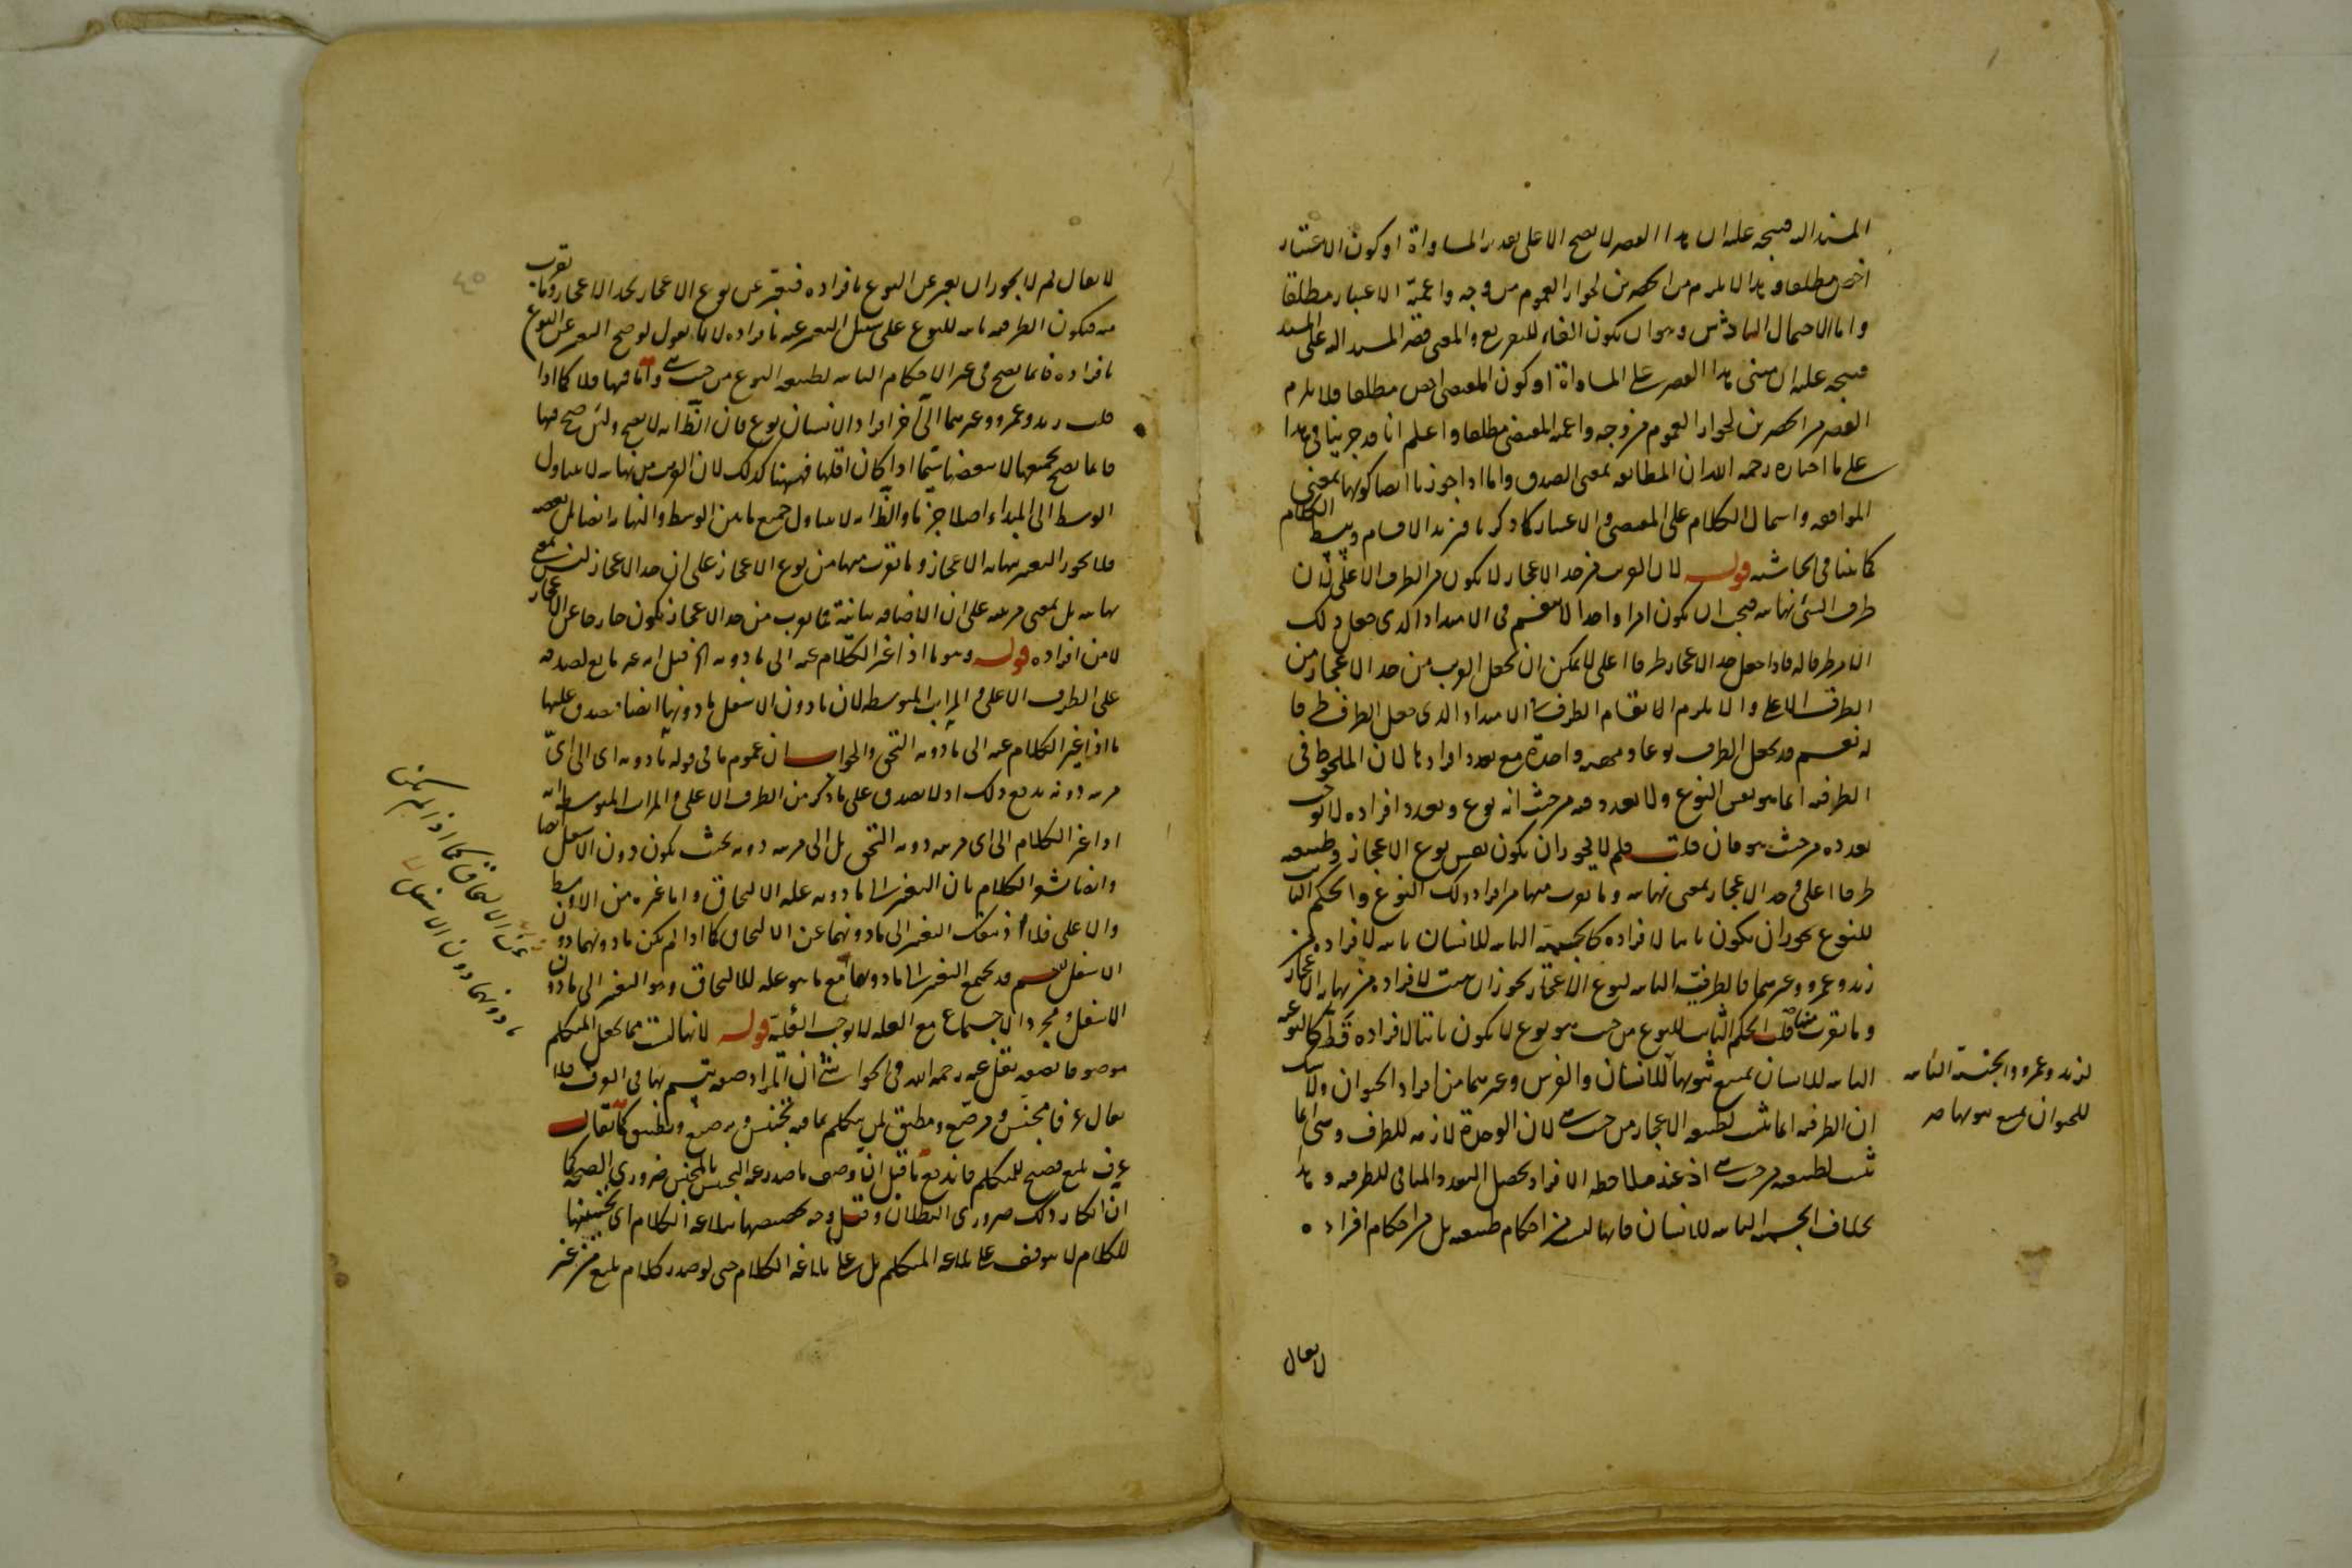 المسند اليه فيتجه عليه ان هذا القصر لا يصح الا على تقدير المساواة او كون الاعتبار
اخص مطلقا وهذا لا يلزم من الحصرين لجواز العموم من وجه واعمية الاعتبار مطلقا
واما الاحتمال السادس وهو ان يكون الفاء للتفريع والمعنى قصر المسند اليه على المسند
فيتجه عليه ان مبنى هذا القصر على المساواة او كون المقتضى اخص مطلقا ولا يلزم
القصر من الحصرين لجواز العموم من وجه واعمية المقتضى مطلقا واعلم انا قد جرينا في هذا
على ما اختاره رحمه الله ان المطابقة بمعنى الصدق واما اذا جوزنا ايضا كونها بمعنى
الموافقة واشتمال الكلام على المقتضى والاعتبار كما ذكر نا فيزيد الاقسام ويبسط الكلام
كما بينا في الحاشية قوله لان القريب من حد الاعجاز لا يكون من الطرف الاعلى لان
طرف الشئ نهايته فيجب ان يكون امرا واحدا لا ينقسم في الامتداد الذي جعل ذلك
الامر طرفا له فاذا جعل حد الاعجاز طرفا اعلى لا يمكن ان يجعل القريب من حد الاعجاز من
الطرف الاعلى والا يلزم الانقسام الطرف في الامتداد الذي جعل الطرف طرفا
له نعم قد يجعل الطرف نوعا وحصة واحدة مع تعدد افرادها لان الملحوظ في
الطرفية انما هو نفس النوع ولا تعدد فيه من حيث انه نوع وتعدد افراده لا يوجب
تعدده من حيث هو فان قلت فلم لا يجوز ان يكون نفس نوع الاعجاز وطبيعته
طرفا اعلى وحد الاعجاز بمعنى نهايته وما يقرب منها من افراد ذلك النوع والحكم الثابت
للنوع يجوز ان يكون ثابتا لافراده كالجسمية الثابتة للانسان ثابتة لافراده من
زيد وعمرو وغيرهما فالطرفية الثابتة لنوع الاعجاز يجوز ان تثبت لافراده من نهاية الاعجاز
وما يقرب منها قلت الحكم الثابت للنوع من حيث هو نوع لا يكون ثابتا لافراده قط كالنوعية
الثابتة للانسان يمتنع ثبوتها للانسان والفرس وغيرهما من افراد الحيوان ولا شك
ان الطرفية انما تثبت لطبيعة الاعجاز من حيث هي لان الوحدة لازمة للطرف وهي انما
تثبت لطبيعته من حيث هي اذ عند ملاحظة الافراد يحصل التعدد والمنافي للطرفية وهذا
بخلاف الجسمية الثابتة للانسان فانها ليست من احكام طبيعته بل من احكام افراده
لزيد وعمرو والجنسية الثابتة
للحيوان يمتنع ثبوتها صح
لا يقال
لا يقال لم لا يجوز ان يعبر عن النوع بافراده فيعبر عن نوع الاعجاز بحد الاعجاز وما يقرب
منه فيكون الطرفية ثابتة للنوع على سبيل التعبير عنه بافراده لانا نقول لو صح التعبير عن النوع
بافراده فانما يصح في غير الاحكام الثابتة لطبيعة النوع من حيث هي واما فيها فلا كما اذا
قلت زيد وعمرو وغيرهما الى آخر افراد الانسان نوع فان الظ انه لا يصح ولئن صح فيها
فانما يصح بجميعها لا ببعضها سيما اذا كان اقلها فههنا كذلك لان القريب من نهايته لا يتناول
الوسط الى المبداء اصلا جزما والظ انه لا يتناول جميع ما بين الوسط والنهاية ايضا بل بعضه
فلا يجوز التعبير بنهاية الاعجاز وما يقرب منها من نوع الاعجاز على ان حد الاعجاز ليس بمعنى
نهايته بل بمعنى مرتبته على ان الاضافة بيانية فما يقرب من حد الاعجاز يكون خارجا عن الاعجاز
لا من افراده قوله وهو ما اذا غير الكلام عنه الى ما دونه اه قيل انه غير مانع لصدقه
على الطرف الاعلى والمراتب المتوسطة لان ما دون الاسفل ما دونها ايضا فيصدق عليها
ما اذا غير الكلام عنه الى ما دونه التحق والجواب ان عموم ما في قوله ما دونه اي الى اي
مرتبة دونه يدفع ذلك اذ لا يصدق على ما ذكر من الطرف الاعلى والمراتب المتوسطة انه
اذا غير الكلام الى اي مرتبة دونه التحق بل الى مرتبة دونه بحيث يكون دون الاسفل ايضا
وايضا يشعر الكلام بان التغيير الى ما دونه علة الالتحاق واما غيره من الاوسط
والاعلى فلا اذ ينفك التغيير الى ما دونهما عن الالتحاق كما اذا لم يكن ما دونهما دون
الاسفل نعم قد يجتمع التغيير الى ما دونهما مع ما هو علة للالتحاق وهو التغيير الى ما دون
الاسفل ومجرد الاجتماع مع العلة لا يوجب العلية قوله لانها ليست مما يجعل المتكلم
موصوفا بصفة نقل عنه رحمه الله في الحواشي ان المراد صفة يتسم بها في العرف فلا
يقال عرفا مجنس ومرصع ومطبق لمن يتكلم بما فيه تجنيس وترصيع وتطبيق كما يقال
عرفا بليغ فصيح للمتكلم فاندفع ما قيل ان وصف ما صدر عنه التجنيس بالمجنس ضروري الصحة كما
ان انكار ذلك ضروري البطلان وقيل وجه تخصيصها ببلاغة الكلام اي تحسينها
للكلام لا يتوقف على بلاغة المتكلم بل على بلاغة الكلام حتى لو صدر كلام بليغ من غير